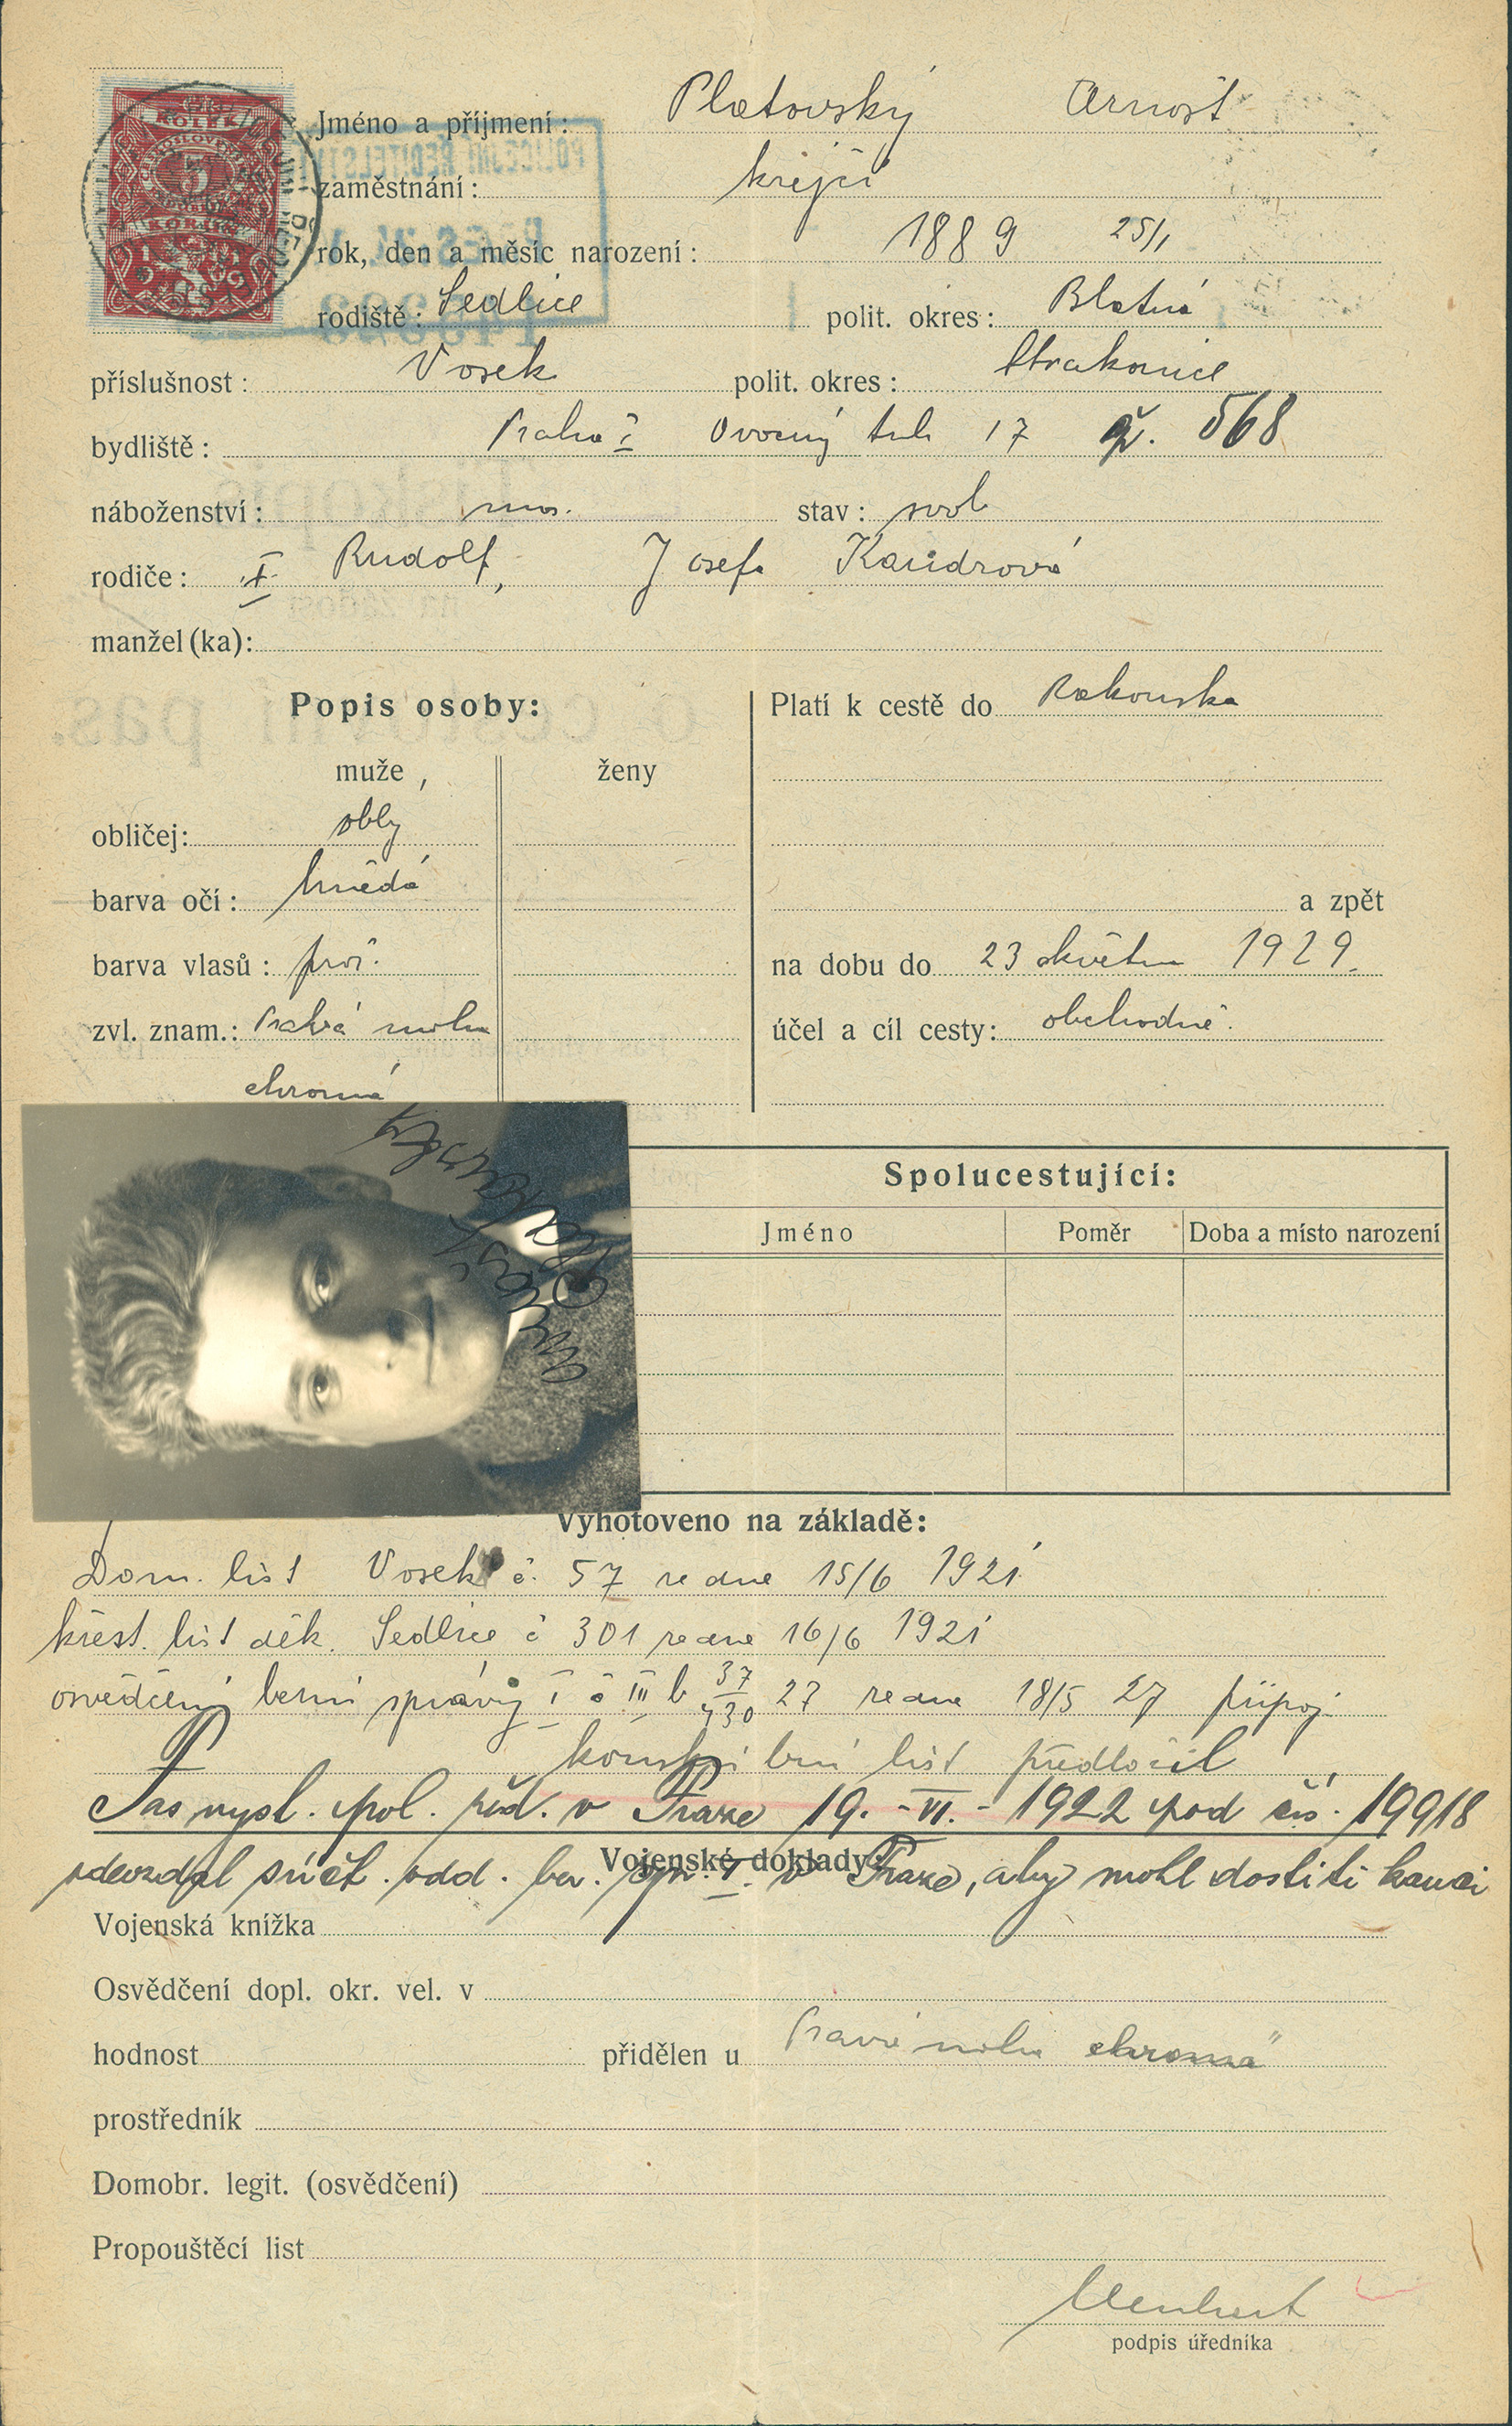 Jméno a příjmení: Platovský Arnošt
zaměstnání: krejčí
rok, den a měsíc narození: 1889 25/1
rodiště: Sedlice polit. okres: Blatná
příslušnost: Vosek polit. okres: Strakonice
bydliště: Praha I Ovocný trh 17 čp. 568
náboženství: mos. stav: svob
rodiče: Rudolf, Josefa
manžel(ka):
Popis osoby:
muže, ženy
obličej: oblý
barva očí: hnědá
barva vlasů: proš.
zvl. znam.: Pravá noha
chromá
Platí k cestě do Rakouska
a zpět
na dobu do 23 května 1929.
účel a cíl cesty: obchodně.
Spolucestující:
Jméno Poměr Doba a místo narození
Vyhotoveno na základě:
Dom. list Vosek č. 57 ze dne 15/6 1921
křest. list děk. Sedlice č 301 ze dne 16/6 1921
osvědčení berní správy I č III b 37/430 27 ze dne 18/5 27 připoj.
list předložil
Pas vyst. pol. řed. v Praze 19.-VI.-1922 pod čís. 19918
odevzdal v Praze, aby mohl
Vojenské doklady:
Vojenská knížka
Osvědčení dopl. okr. vel. v
hodnost přidělen u Pravá noha chromá"
prostředník
Domobr. legit. (osvědčení)
Propouštěcí list
podpis úředníka